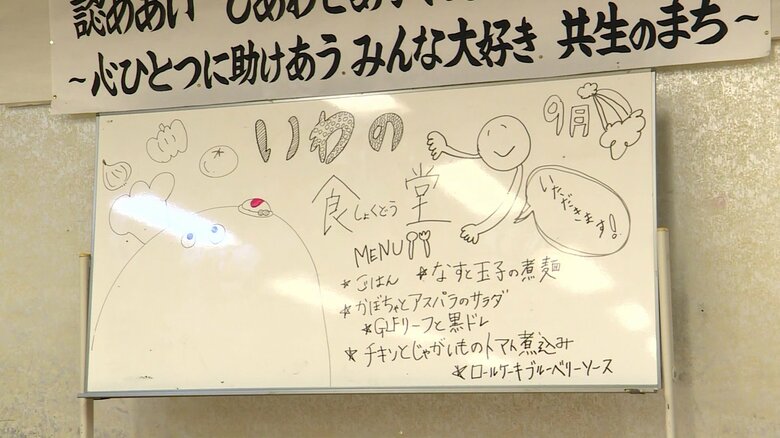 認めあい
~心ひとつに助けあう みんな大好き 共生のまち~
いわの
9月
食しょくどう堂
いただきます!
MENU
*ごはん *なすと玉子の煮麺
*かぼちゃとアスパラのサラダ
*GLFリーフと黒ドレ
*チキンとじゃがいものトマト煮込み
*ロールケーキブルーベリーソース